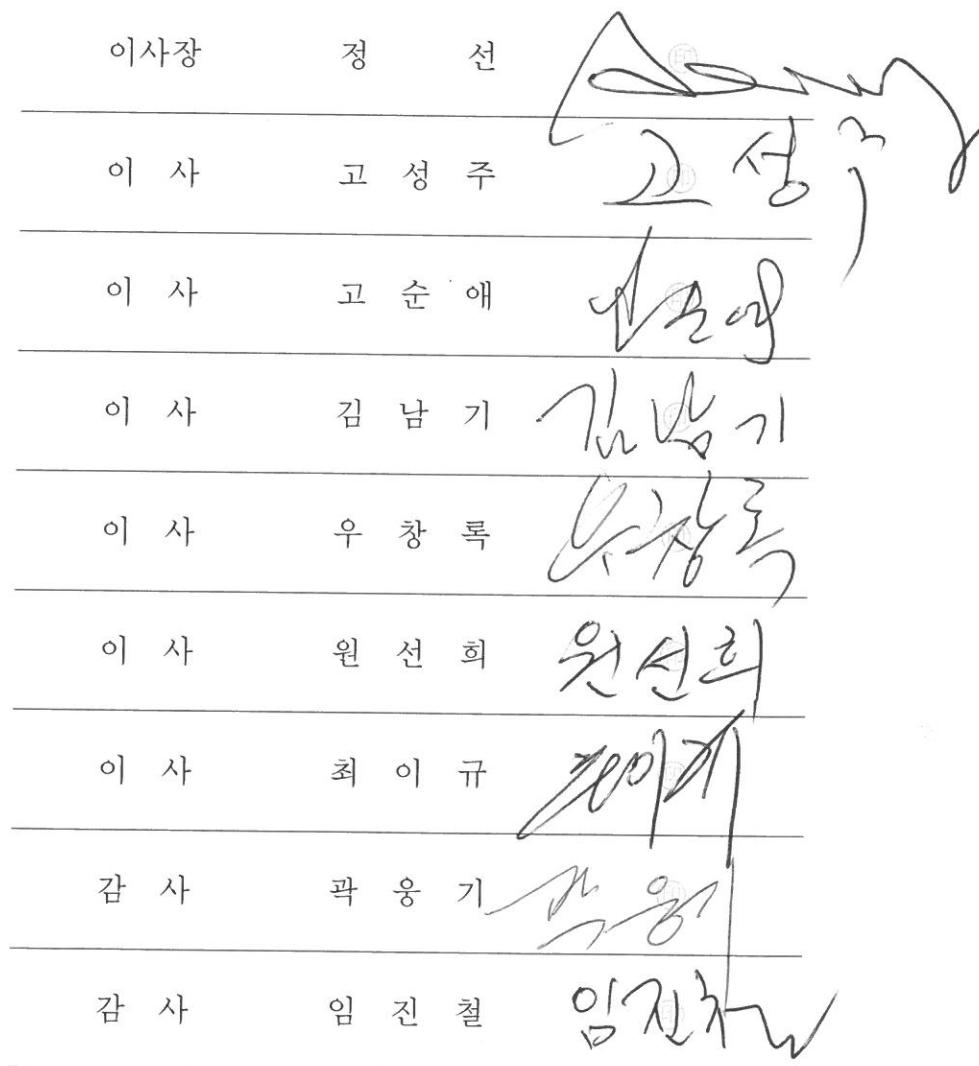 이사장 정 선 印
이 사 고 성 주 印 고성주
이 사 고 순 애 印
이 사 김 남 기 김남기
이 사 우 창 록 우창록
이 사 원 선 희 원선희
이 사 최 이 규 최이규
감 사 곽 웅 기 印 곽웅기
감 사 임 진 철 임진철